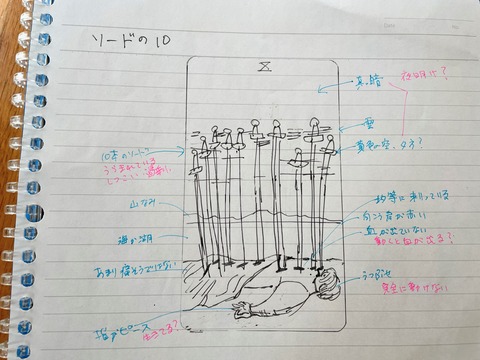 ソードの10
X
真っ暗
夜明け?
雲
黄色の空、夕方?
10本のソード
うらまれている
しつこい
山なみ
均等に刺さっている
向こう岸が赤い
血が出ていない
動くと血が出る?
海か湖
あまり痛そうではない
うつぶせ
完全に動けない
指がピース
生きてる?